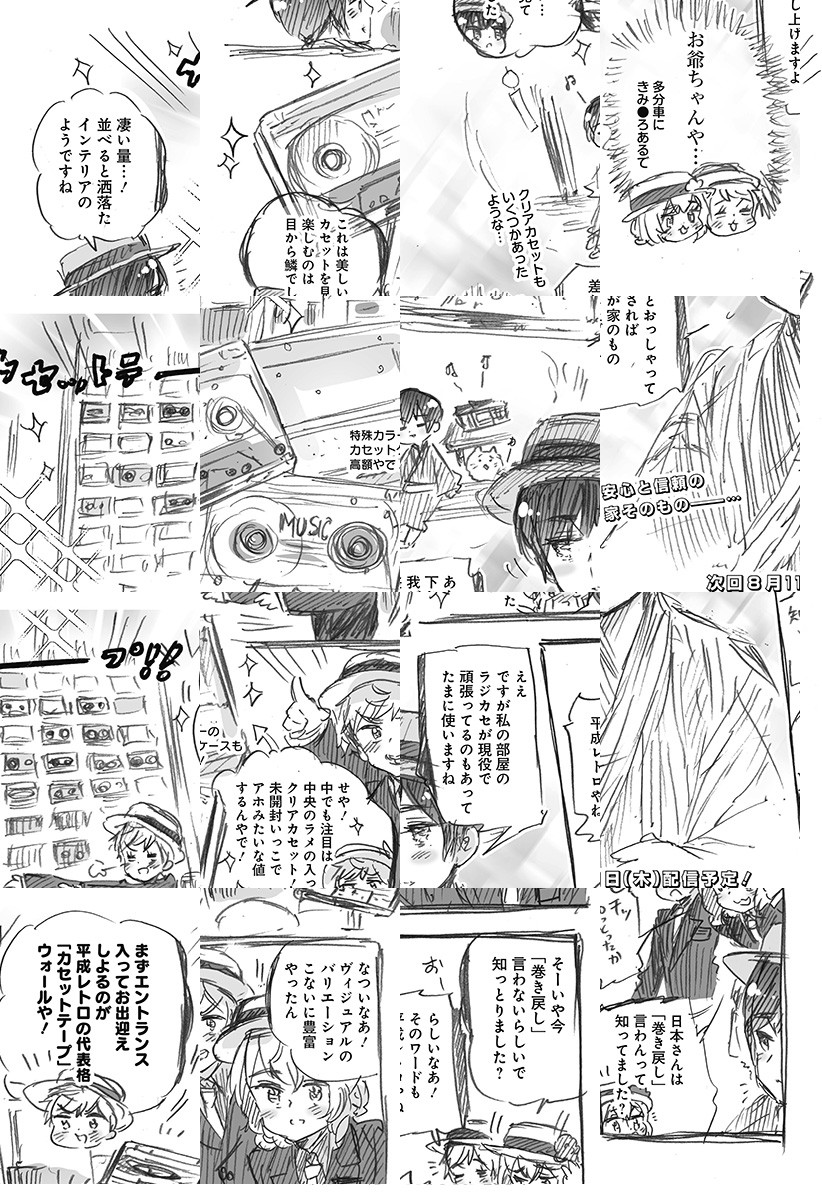 凄い量…!
並べると洒落た
インテリアの
ようですね
これは美しい
カセットを見
楽しむのは
目から鱗でし
た…
クリアカセットも
いくつかあった
ような…
差
し上げますよ
お爺ちゃんや…
多分車に
きみ●ろあるて
カセットテー
特殊カラ
カセット
高額やで
MUSIC
あ
下
我
とおっしゃって
されば
が家のもの
安心と信頼の
家そのもの――…
次回8月11
プ!!
ーの
ケースも
せや!
中でも注目は
中央のラメの入っ
クリアカセット!
未開封いっこで
アホみたいな値
するんやで!
平成レトロやね
ええ
ですが私の部屋の
ラジカセが現役で
頑張ってるのもあって
たまに使いますね
日(木)配信予定!
まずエントランス
入ってお出迎え
しよるのが
平成レトロの代表格
「カセットテープ」
ウォールや!
なついなあ!
ヴィジュアルの
バリエーション
こないに豊富
やったん
そーいや今
「巻き戻し」
言わないらしいで
知っとりました?
らしいなあ!
そのワードも
おー
日本さんは
「巻き戻し」
言わんって
知ってました?